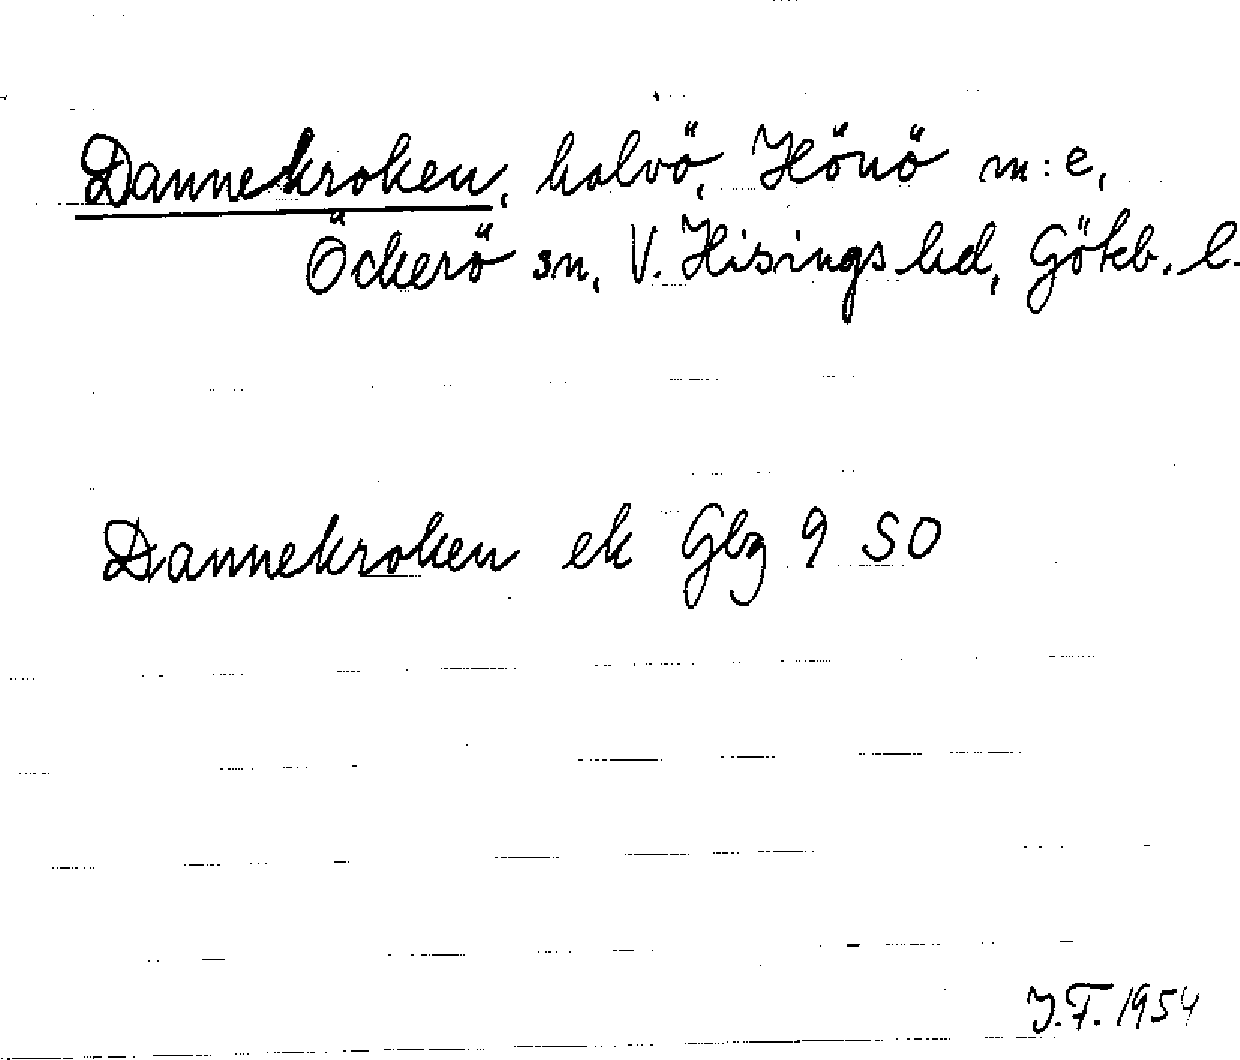 Dannekroken, halvö, Hönö m:e,
Öckerö sn, V. Hisings hd, Götéb. l.
Dannekroken ek Gbg 9 SO
J.F. 1954